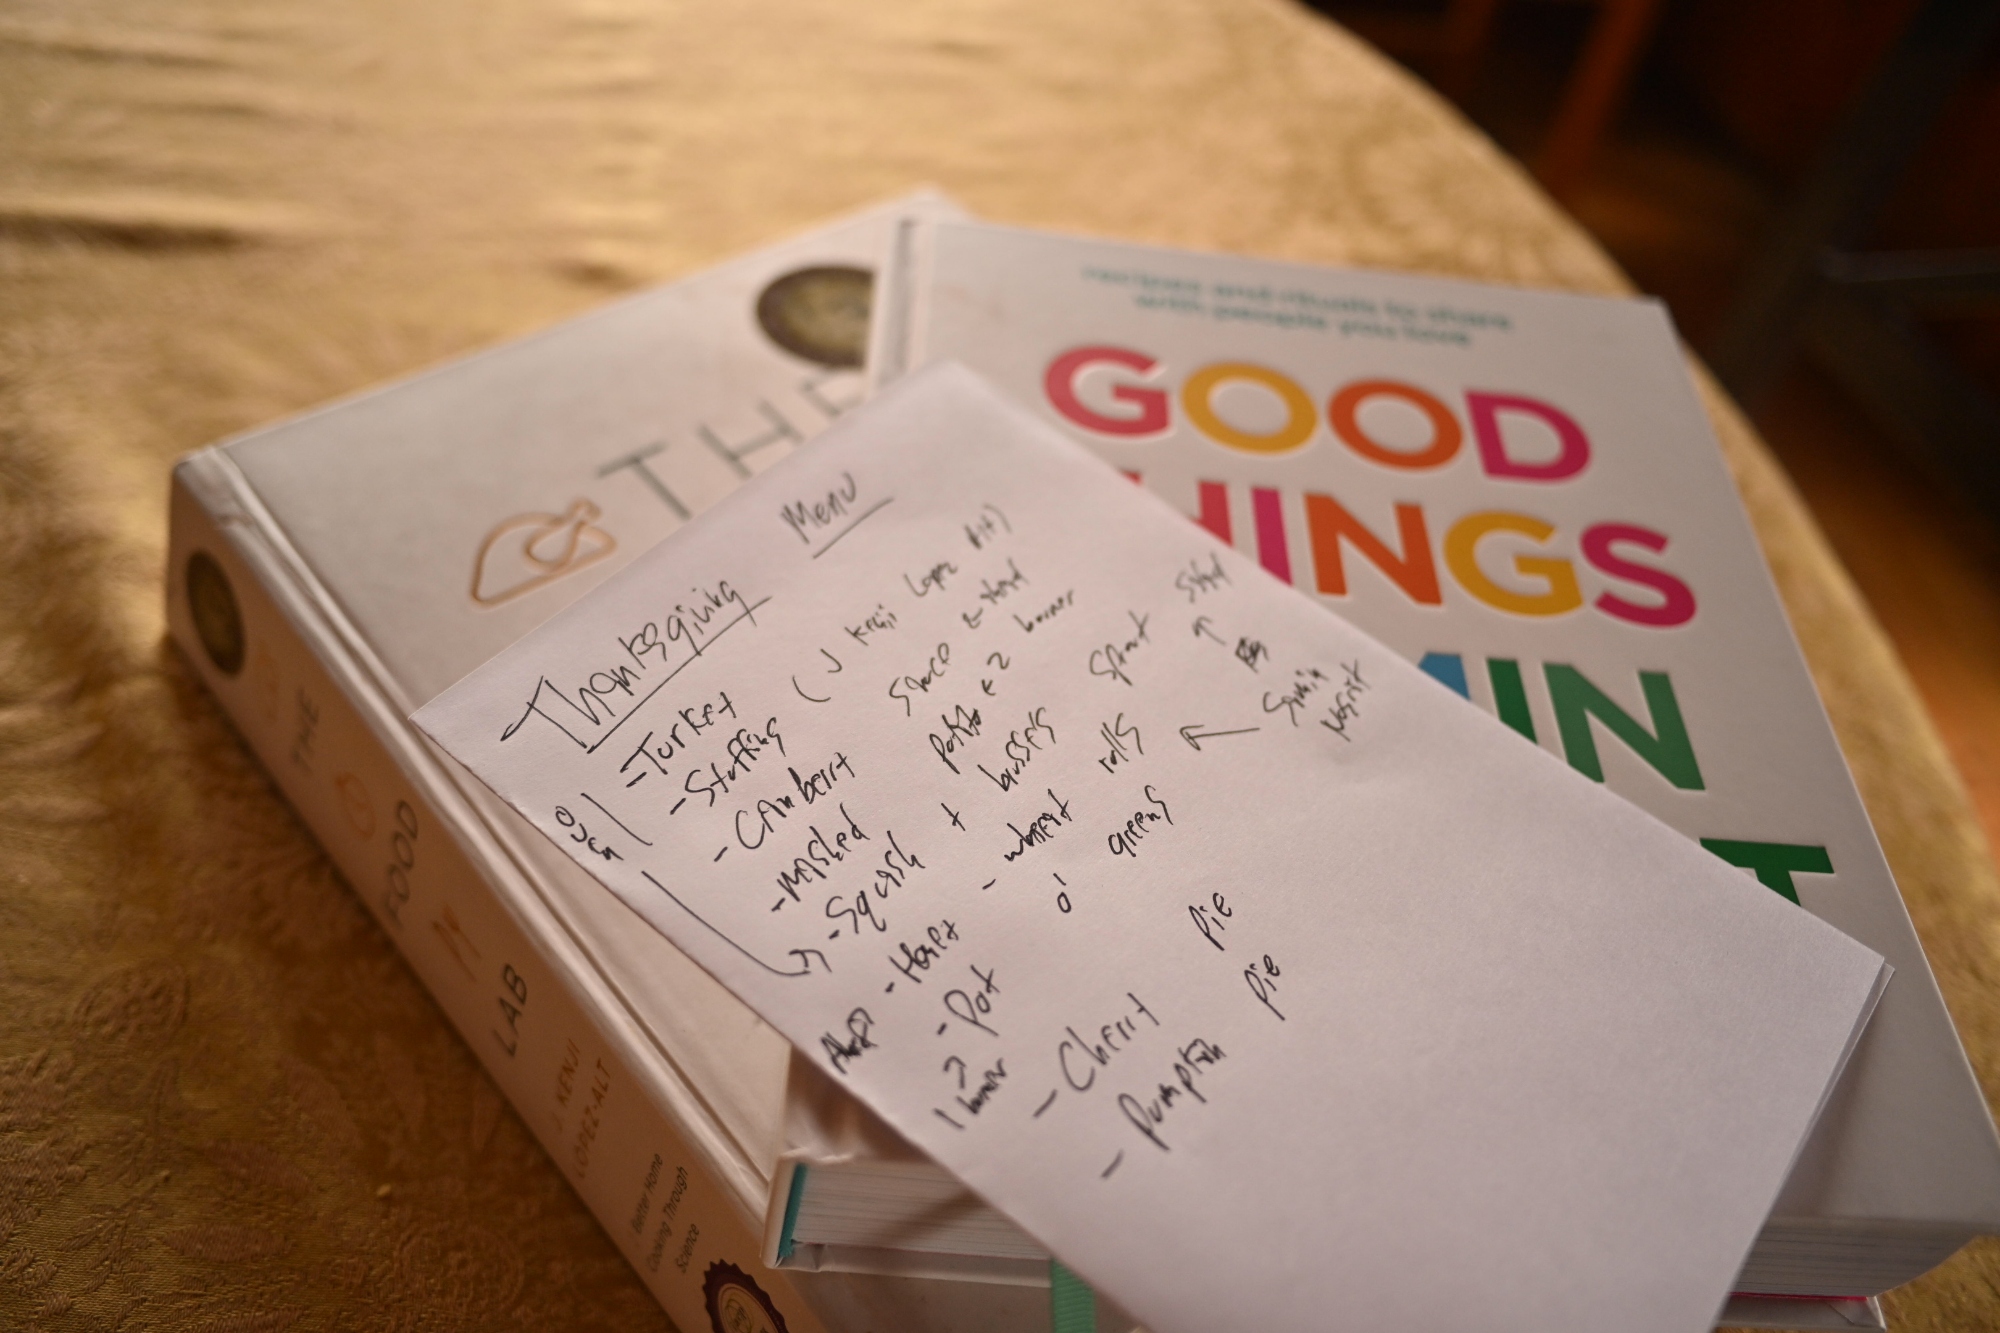 THE
THE FOOD LAB
J. KENJI LÓPEZ-ALT
Better Home
Cooking Through
Science
recipes and rituals to share
with people you love
GOOD
THINGS
IN
T
Thanksgiving Menu
- Turkey ( J Kenji Lopez Alt)
- Stuffing
- Cranberry Sauce
- Mashed potato ← 2 burner
- Squash + brussels sprout salad
- Honey - wheat rolls ← Samin Nosrat
- Pot o' greens
1 burner
- Cherry Pie
- Pumpkin Pie
oven